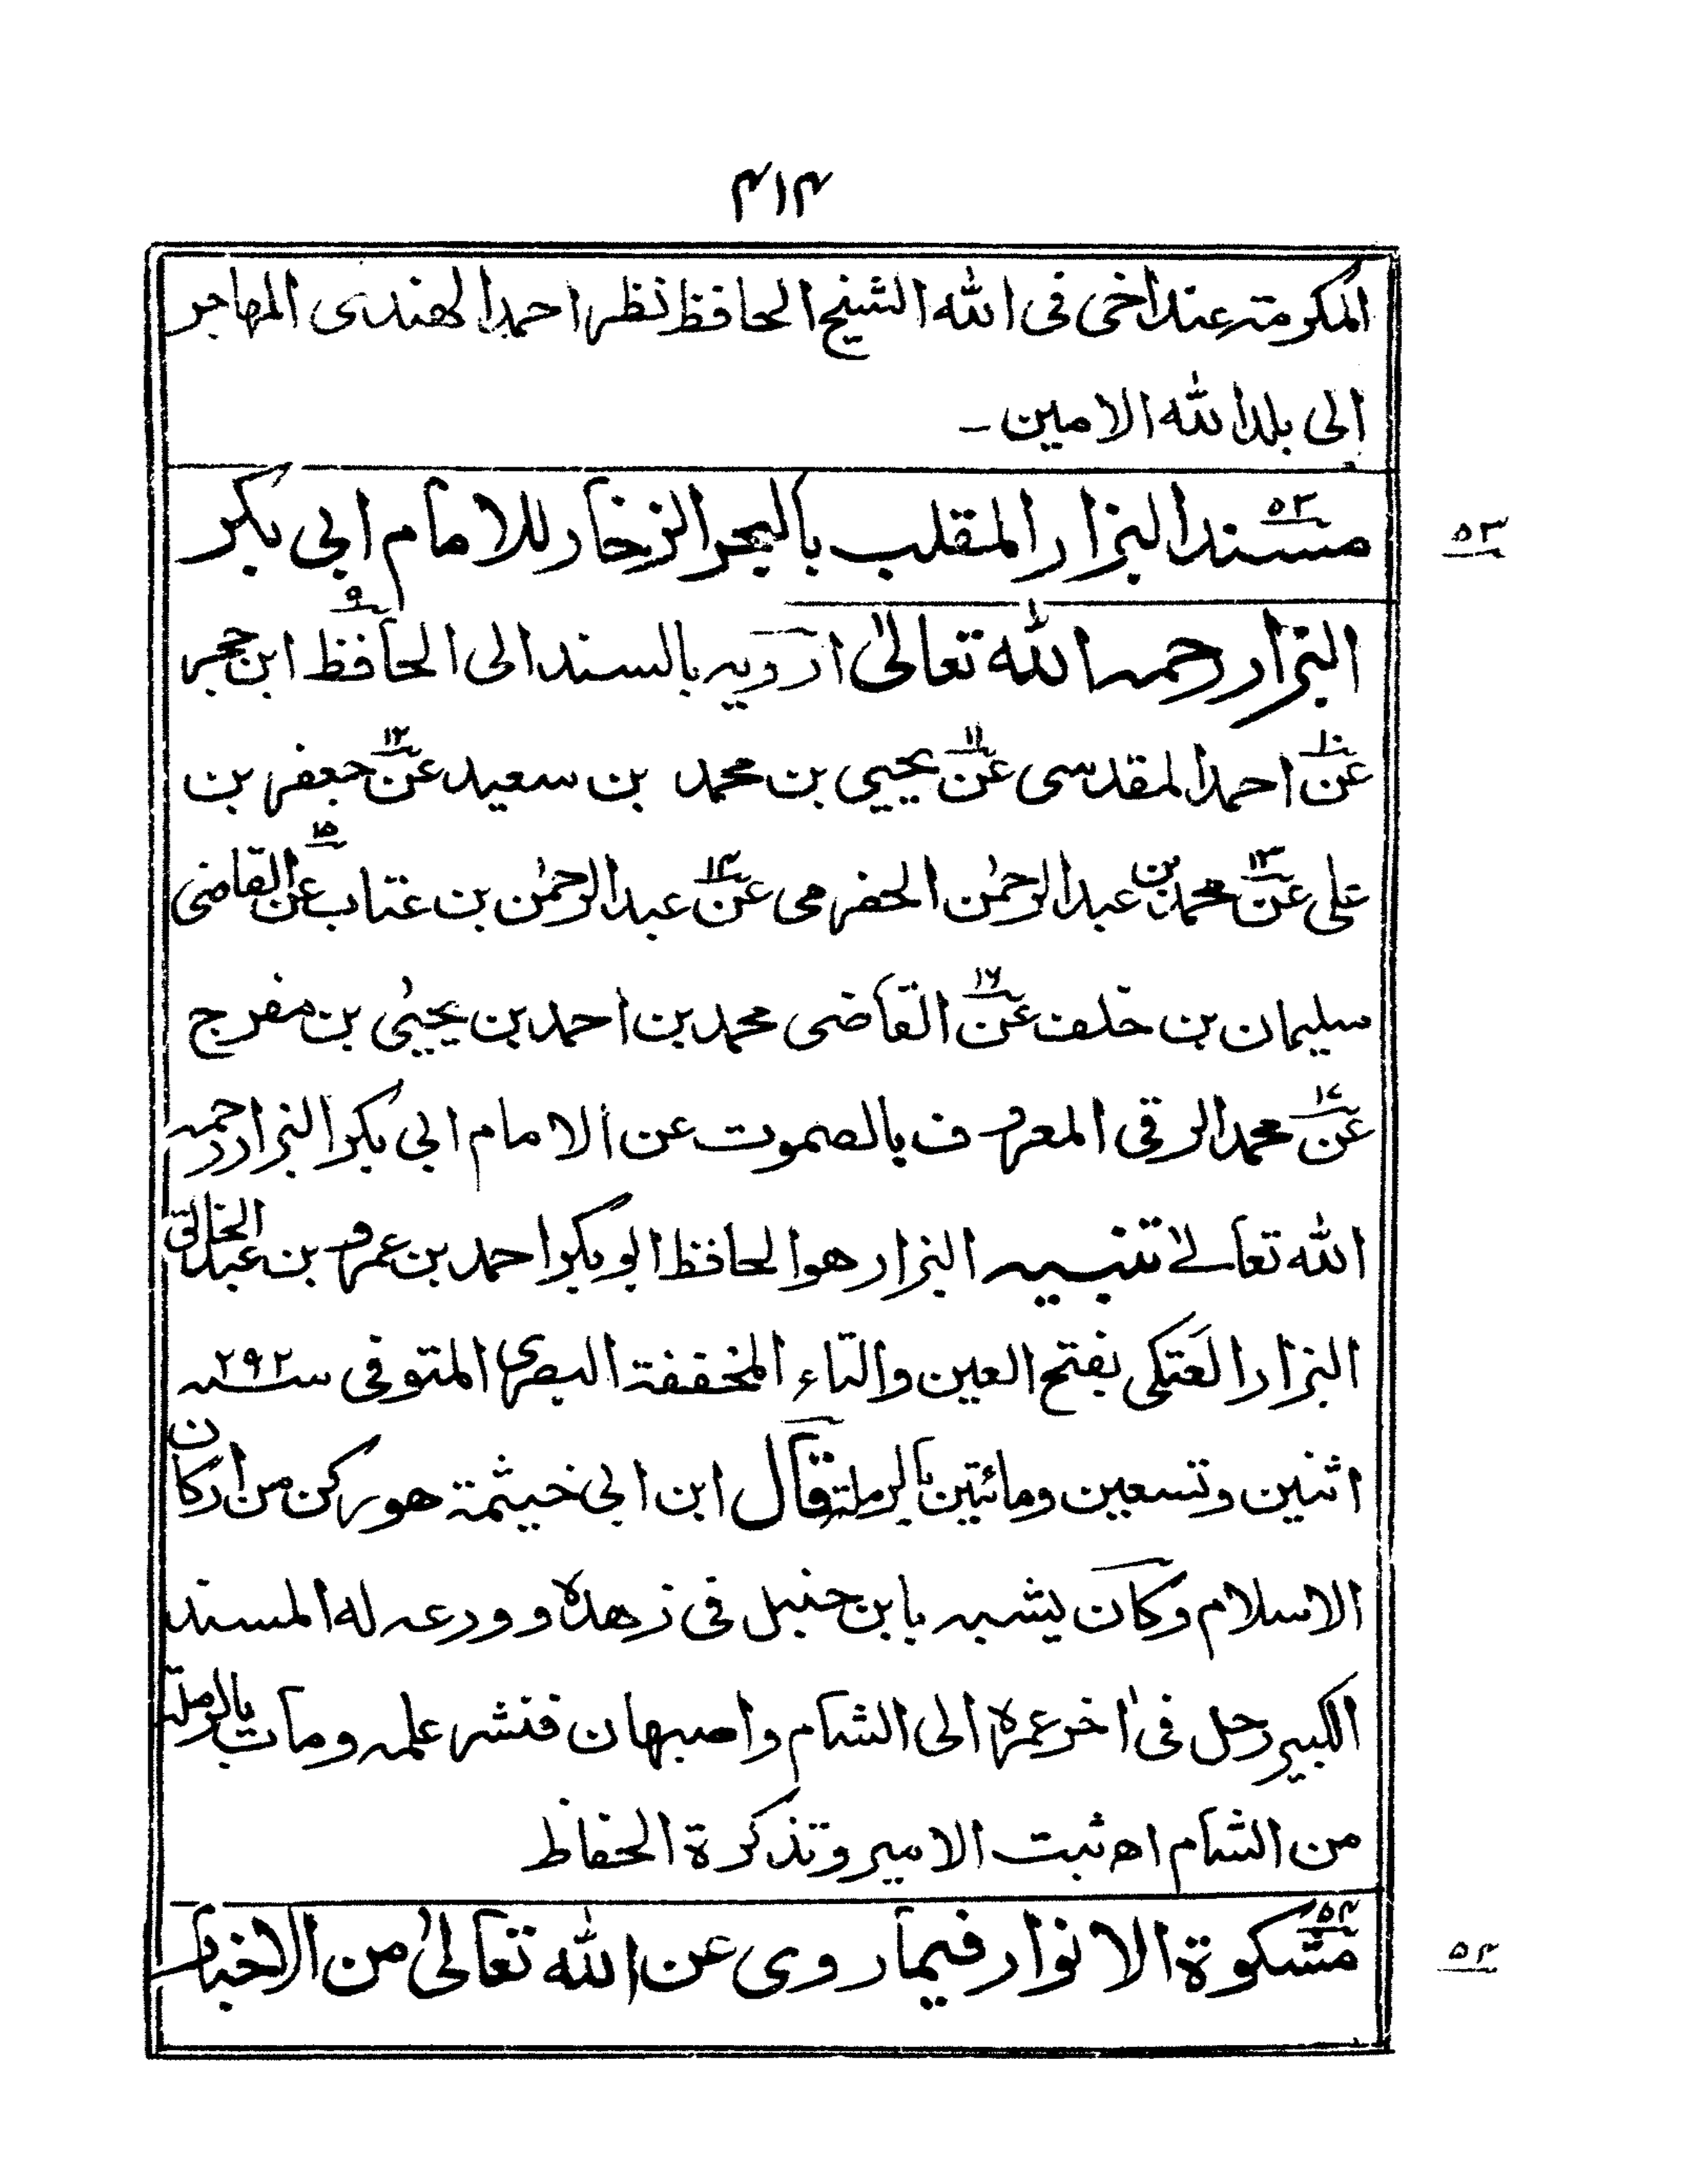 ۴۱۴
المكرمة عند اخى فى الله الشيخ الحافظ نظر احمد الهندى المهاجر
الى بلد الله الامين ـ
۵۳
مسند البزار المقلب بالبحر الزخار للامام ابى بكر
۵۳
البزار رحمه الله تعالىٰ ارويه بالسند الى الحافظ ۹ ابن حجر
عن ۱۰ احمد المقدسى عن ۱۱ يحيي بن محمد بن سعيد عن ۱۲ جعفر بن
على عن ۱۳ محمد بن عبد الرحمٰن الحضرمى عن ۱۴ عبد الرحمٰن بن عتاب عن ۱۵ القاضى
سليمان بن خلف عن ۱۶ القاضى محمد بن احمد بن يحيىٰ بن مفرج
عن ۱۷ محمد الرقى المعروف بالصموت عن الامام ابى بكر البزار رحمه
الله تعالےٰ تنبيه البزار هو الحافظ ابو بكر احمد بن عمرو بن عبد الخالق
البزار العَتَكى بفتح العين والتاء المخففة البصرى المتوفى سنه ۲۹۲
اثنين وتسعين ومائتين بالرملة قال ابن ابى خيثمة هو ركن من اركان
الاسلام وكان يشبه بابن حنبل فى زهده وورعه له المسند
الكبير رحل فى اٰخر عمره الى الشام واصبهان فنشر علمه ومات بالرملة
من الشام اھ ثبت الامير وتذكرة الحفاظ
۵۴
مشكوة الانوار فيما روى عن الله تعالىٰ من الاخبار
۵۴